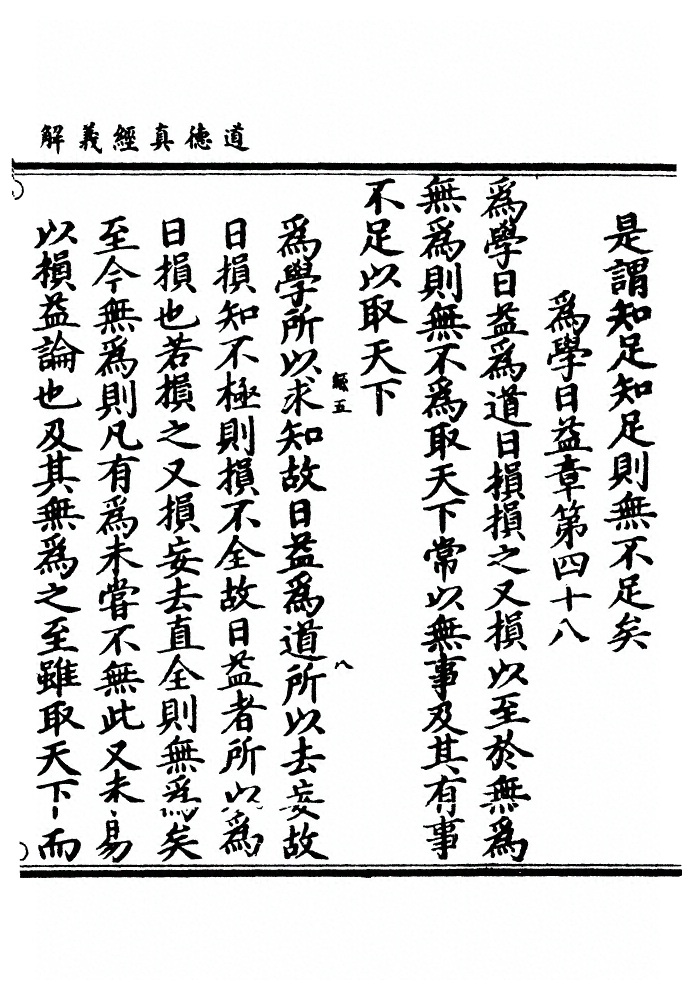 道德真經義解
是謂知足知足則無不足矣
爲學日益章第四十八
爲學日益爲道日損損之又損以至於無爲
無爲則無不爲取天下常以無事及其有事
不足以取天下
經五
八
爲學所以求知故日益爲道所以去妄故
日損知不極則損不全故日益者所以爲
日損也若損之又損妄去直全則無爲矣
至今無爲則凡有爲未嘗不無此又未易
以損益論也及其無爲之至雖取天下而